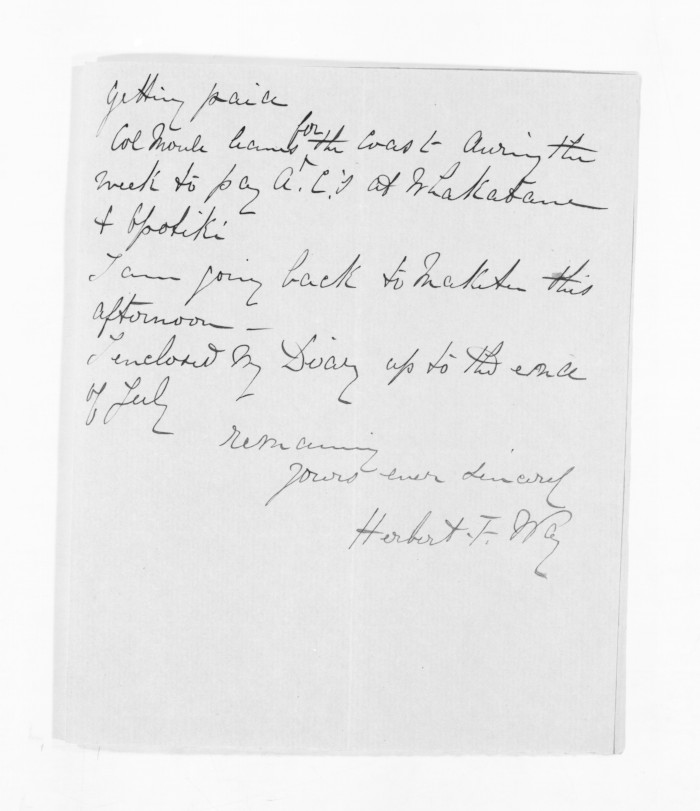 getting paid
Col Moule leaves for the Coast during the
week to pay A. C.'s at Whakatane
& Opotiki
I am going back to Maketu this
afternoon –
I enclosed my Diary up to the end
of July
remaining
yours ever sincerely
Herbert. F. Way